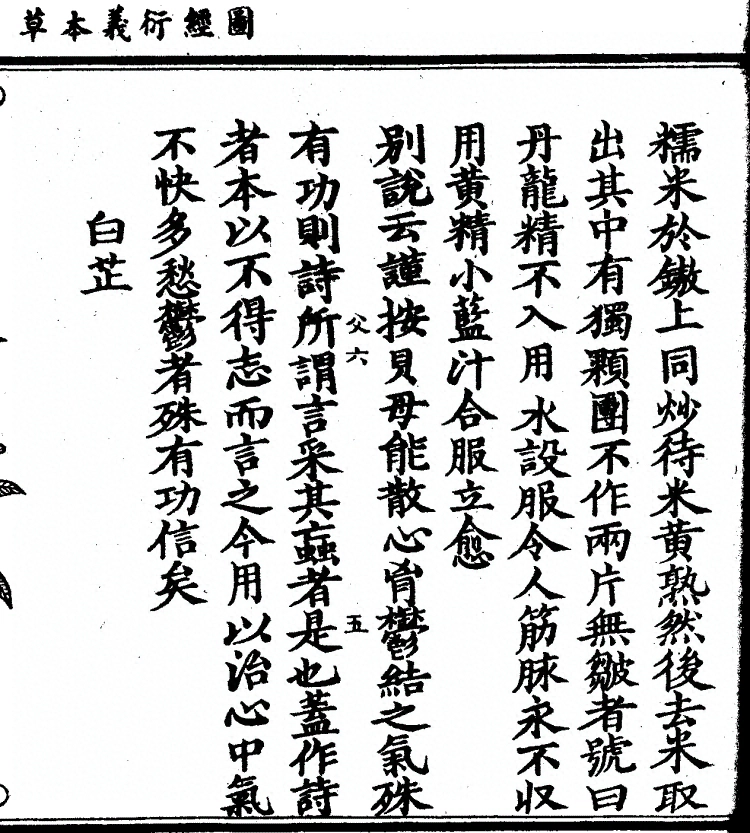 圖經衍義本草
糯米於鏾上同炒待米黄熟然後去米取
出其中有獨顆團不作兩片無皺者號曰
丹龍精不入用水設服令人筋脉永不収
用黄精小藍汁合服立愈
別說云謹按貝母能散心胷鬱結之氣殊
有功則詩所謂言采其蝱者是也蓋作詩
者本以不得志而言之今用以治心中氣
不快多愁鬱者殊有功信矣
白芷
父六
五